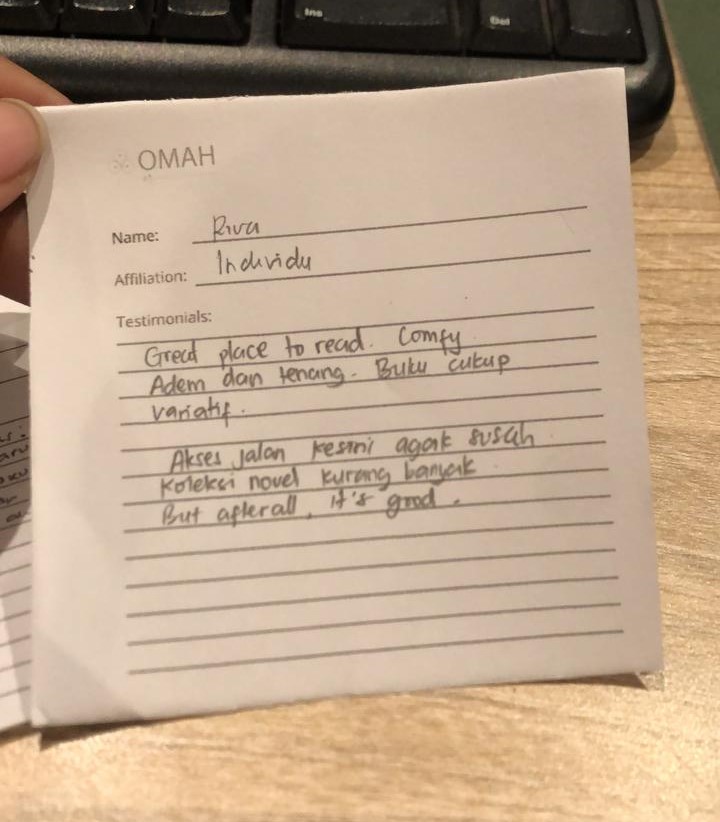 Ins
Del
OMAH
Name: Riva
Affiliation: Individu
Testimonials:
Great place to read. Comfy.
Adem dan tenang. Buku cukup
variatif.
Akses jalan kesini agak susah.
Koleksi novel kurang banyak
But afterall, it's good.